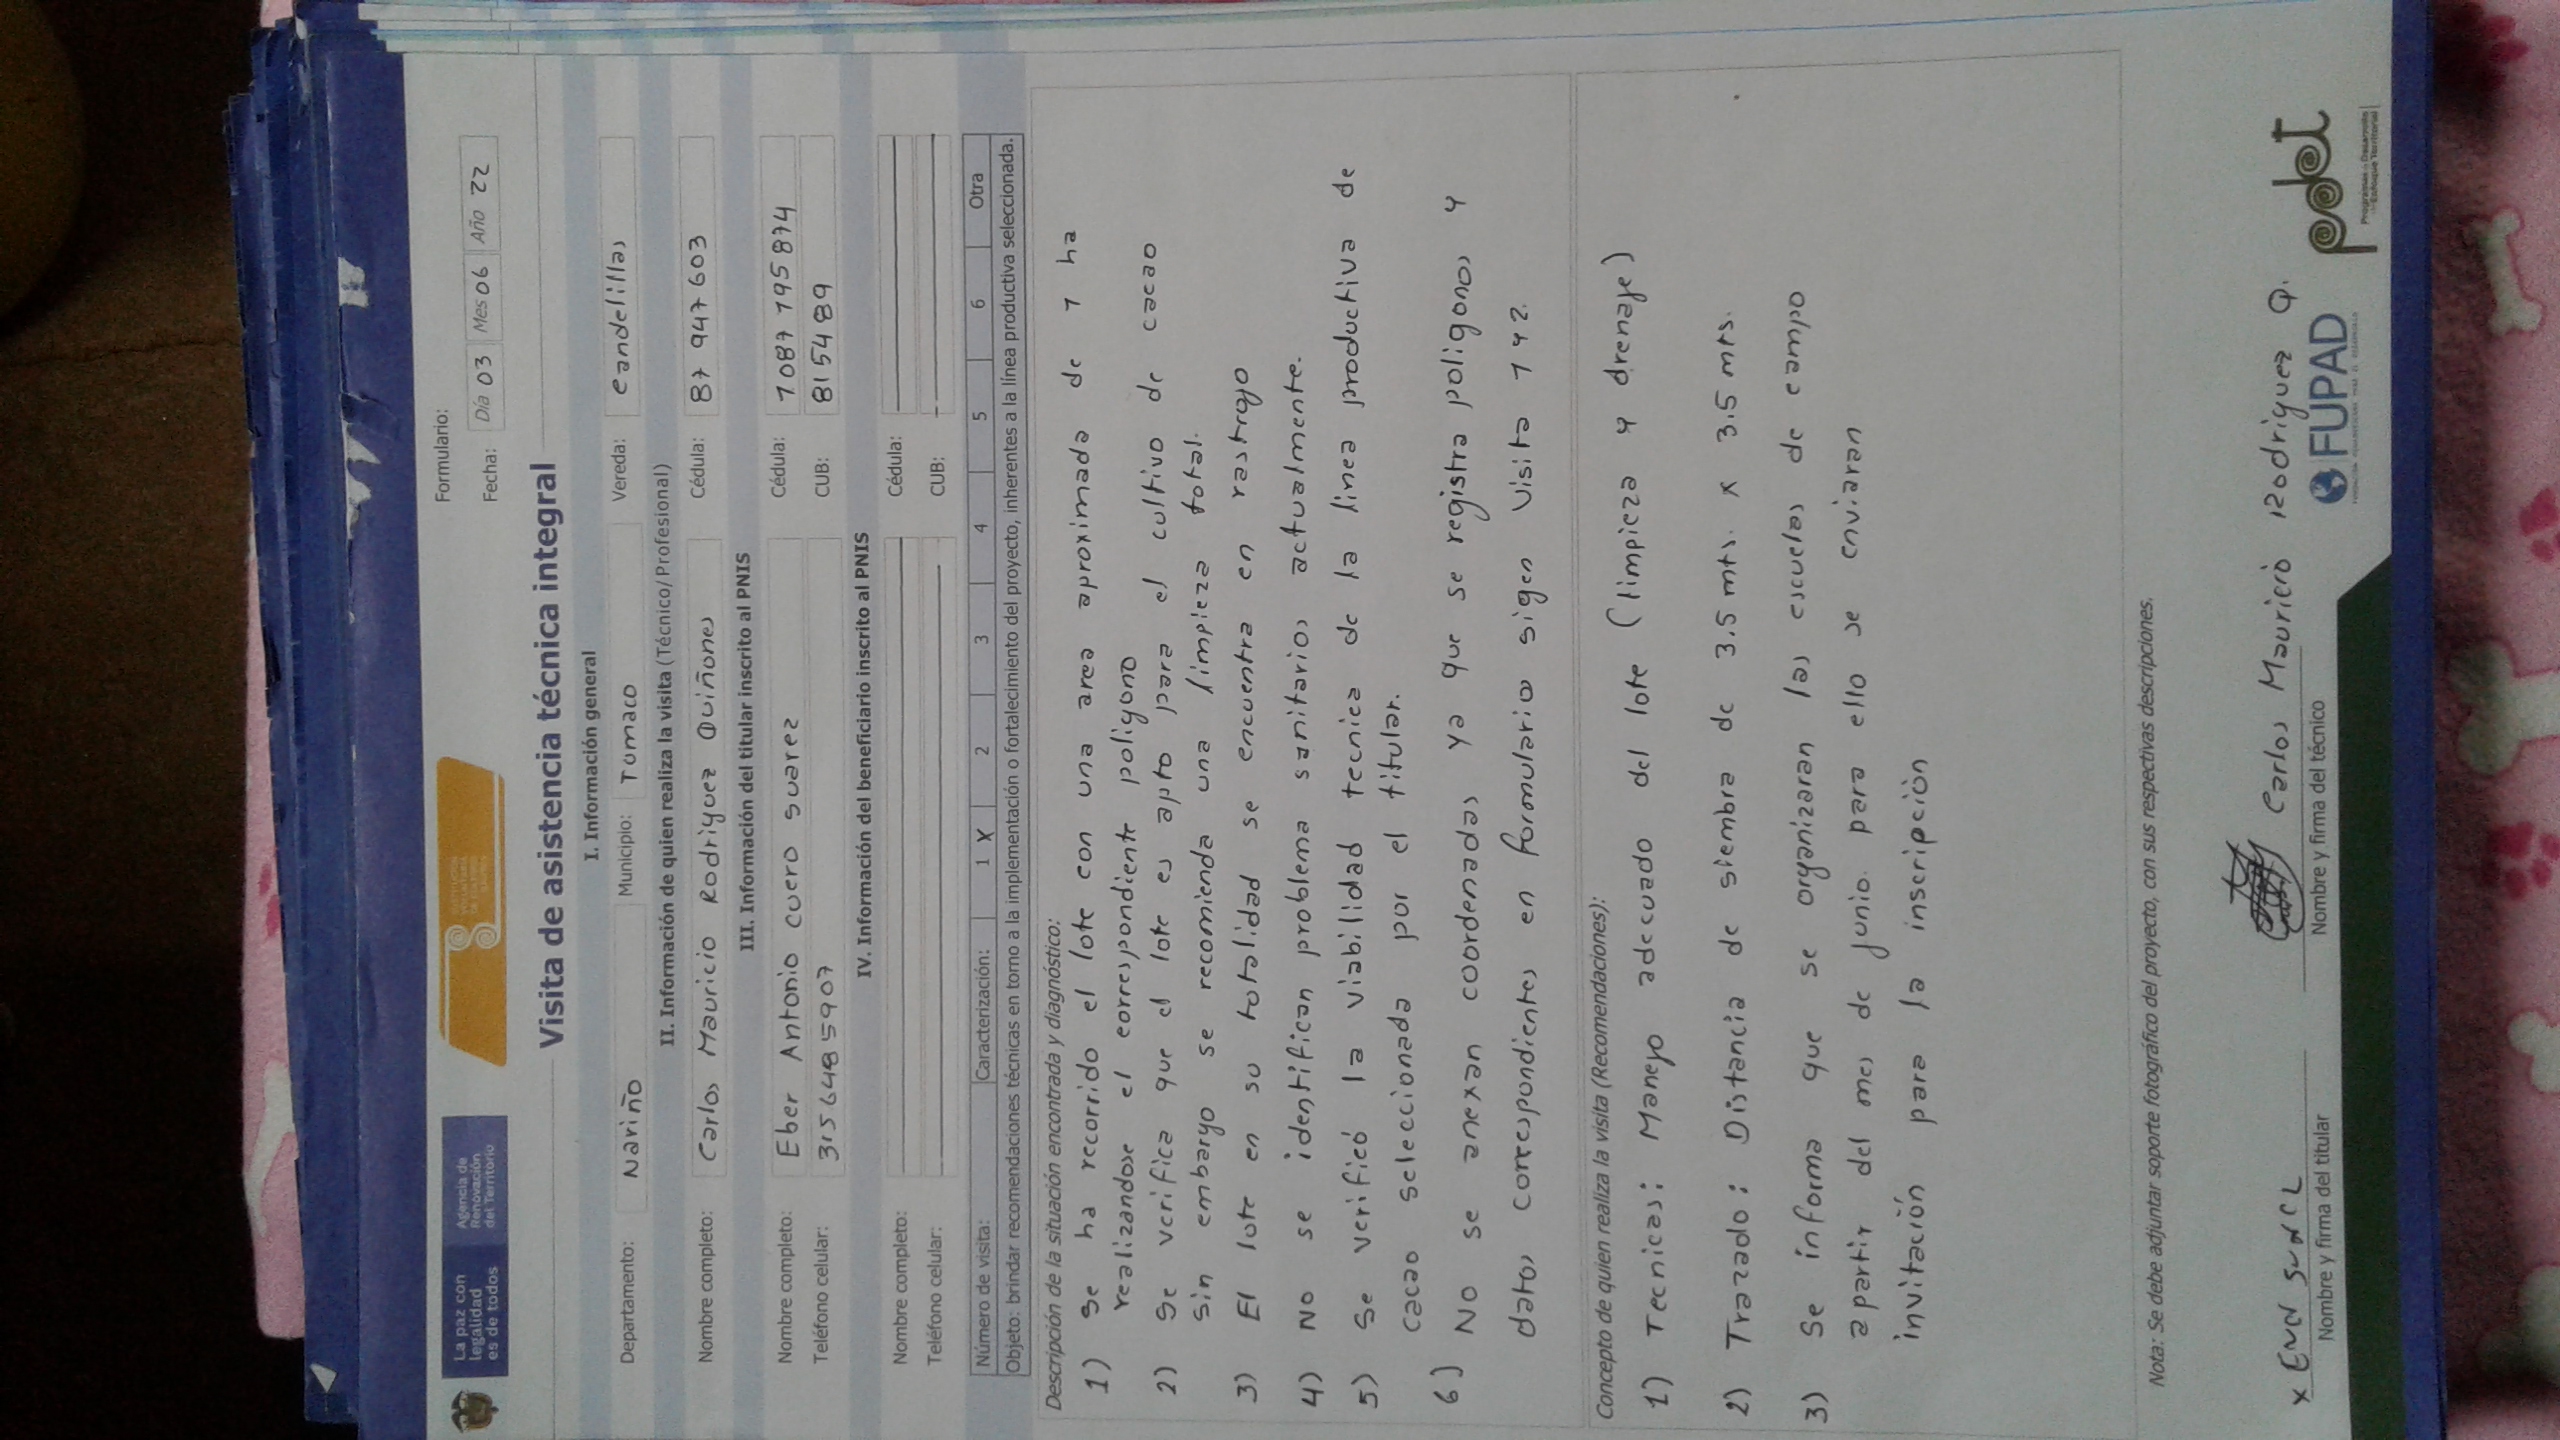 La paz con
legalidad
es de todos
Agencia de
Renovación
del Territorio
Formulario:
Fecha: Día 03 Mes 06 Año 22
Visita de asistencia técnica integral
I. Información general
Departamento: Nariño Municipio: Tumaco Vereda: candelillas
II. Información de quien realiza la visita (Técnico/Profesional)
Nombre completo: Carlos Mauricio Rodriguez Quiñones Cédula: 87 947 603
III. Información del titular inscrito al PNIS
Nombre completo: Eber Antonio cuero suarez Cédula: 1087 195 874
Teléfono celular: 3156485907 CUB: 815489
IV. Información del beneficiario inscrito al PNIS
Nombre completo: Cédula:
Teléfono celular: CUB:
Número de visita: Caracterización: 1 X 2 3 4 5 6 Otra
Objeto: brindar recomendaciones técnicas en torno a la implementación o fortalecimiento del proyecto, inherentes a la línea productiva seleccionada.
Descripción de la situación encontrada y diagnóstico:
1) Se ha recorrido el lote con una area aproximada de 1 ha
realizandose el correspondiente poligono
2) Se verifica que el lote es apto para el cultivo de cacao
sin embargo se recomienda una limpieza total.
3) El lote en su totalidad se encuentra en rastrojo
4) No se identifican problema sanitarios actualmente.
5) Se verificó la viabilidad tecnica de la linea productiva de
cacao seleccionada por el titular.
6) No se anexan coordenadas ya que se registra poligonos y
datos correspondientes en formularios sigen visita 1 y 2.
Concepto de quien realiza la visita (Recomendaciones):
1) Tecnicas: Manejo adecuado del lote (limpieza y drenaje)
2) Trazado: Distancia de siembra de 3.5 mts. x 3.5 mts.
3) Se informa que se organizaran las escuelas de campo
apartir del mes de junio. para ello se enviaran
invitación para la inscripción
Nota: Se debe adjuntar soporte fotográfico del proyecto, con sus respectivas descripciones.
x
Nombre y firma del titular
Carlos Mauricio Rodriguez Q.
Nombre y firma del técnico
FUPAD
pdet
Programas de Desarrollo
con Enfoque Territorial